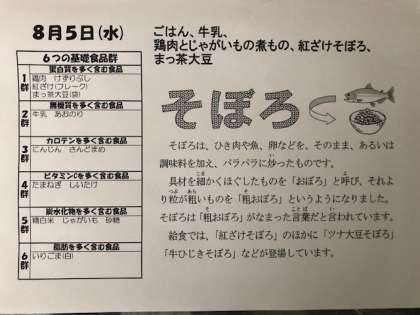 8月5日(水)
ごはん、牛乳、
鶏肉とじゃがいもの煮もの、紅ざけそぼろ、
まっ茶大豆
6つの基礎食品群
1群
蛋白質を多く含む食品
鶏肉 けずりぶし
紅ざけ(フレーク)
まっ茶大豆(袋)
2群
無機質を多く含む食品
牛乳 あおのり
3群
カロテンを多く含む食品
にんじん さんどまめ
4群
ビタミンCを多く含む食品
たまねぎ しいたけ
5群
炭水化物を多く含む食品
精白米 じゃがいも 砂糖
6群
脂肪を多く含む食品
いりごま(白)
そぼろ
そぼろは、ひき肉や魚、卵などを、そのまま、あるいは
調味料を加え、パラパラに炒ったものです。
具材を細かくほぐしたものを「おぼろ」と呼び、それよ
り粒が粗いものを「粗おぼろ」というようになりました。
そぼろは「粗おぼろ」がなまった言葉だと言われています。
給食では、「紅ざけそぼろ」のほかに「ツナ大豆そぼろ」
「牛ひじきそぼろ」などが登場しています。